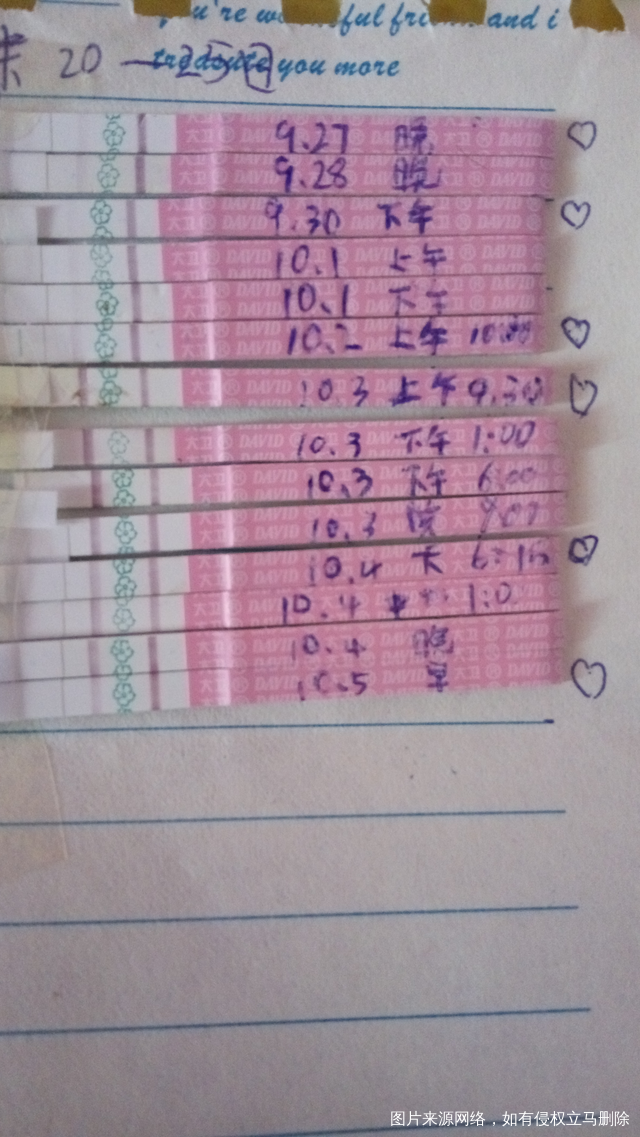 you're wonderful friend and i
卡 20 you more
9.27 晚
9.28 晚
9.30 下午
10.1 上午
10.1 下午
10.2 上午 10:00
10.3 上午 9.30
10.3 下午 1:00
10.3 下午 6:00
10.3 晚 9:00
10.4 6:15
10.4 1:0
10.4 晚
10.5 早
大卫 DAVID
图片来源网络，如有侵权立马删除